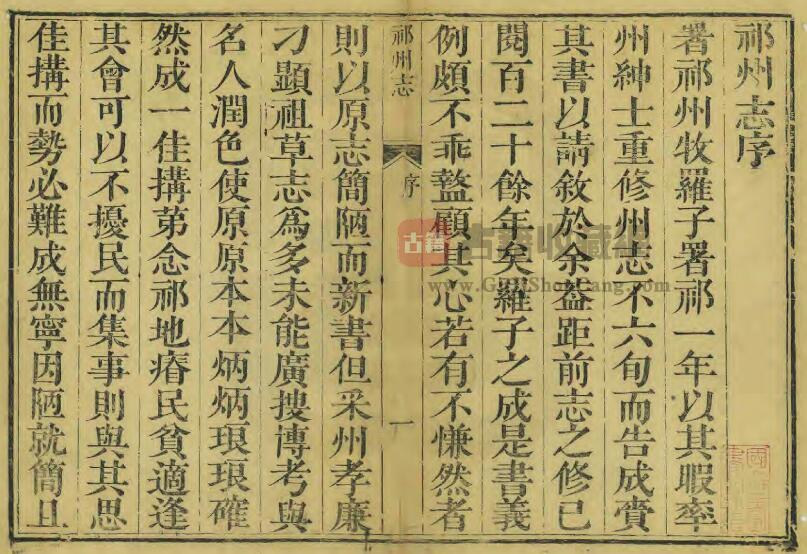 祁州志序
署祁州牧羅子署祁一年以其暇率
州紳士重修州志不六旬而告成賫
其書以請敘於余葢距前志之修已
閱百二十餘年矣羅子之成是書義
例頗不乖盭顧其心若有不慊然者
祁州志
序
一
則以原志簡陋而新書但采州孝廉
刁顯祖草志爲多未能廣搜博考與
名人潤色使原原本本炳炳琅琅確
然成一佳搆第念祁地瘠民貧適逢
其會可以不擾民而集事則與其思
佳搆而勢必難成無寧因陋就簡且
古籍